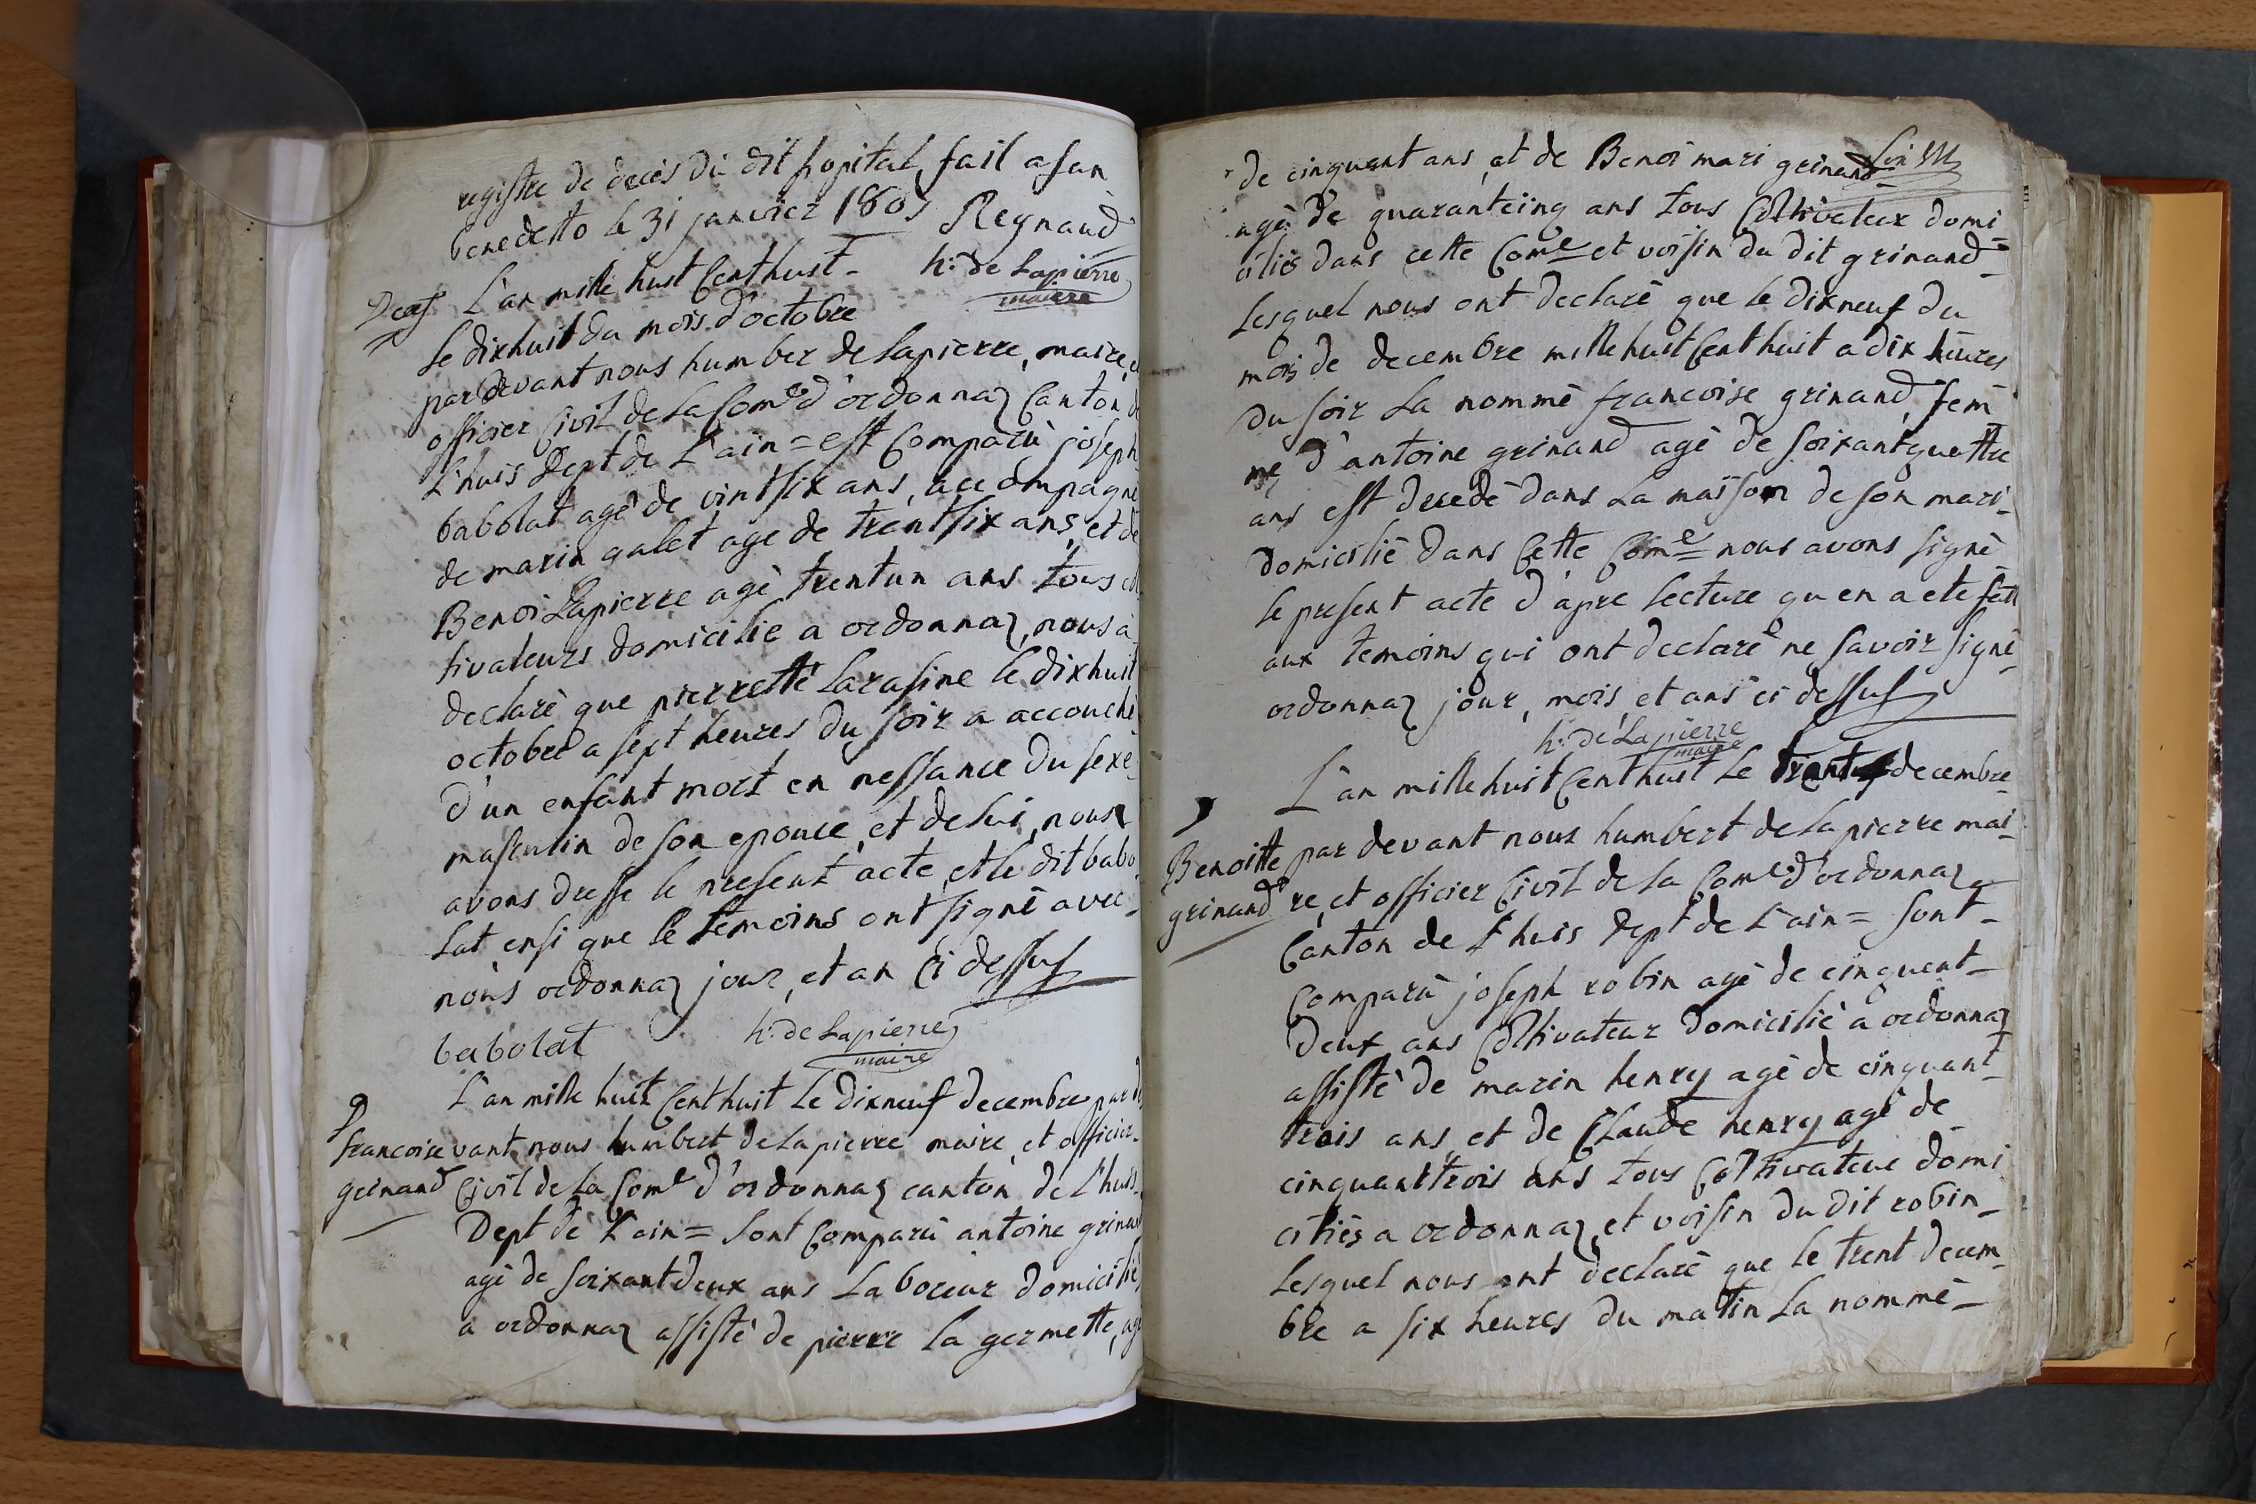 registre de decès du dit hopital, fait a san
benedetto le 31 janvier 1807 Reynaud
h: de Lapierre
maire
Deces L'an mille huit Cent huit
le dix huit du mois d'octobre
par devant nous humber de lapierre, maire, et
officier Civil de la Com.e d'ordonnaz Canton de
L'huis dept de L'ain = est Comparù joseph
babolat agè de vint six ans, accompagnè
de marin galet age de trent six ans, et de
Benoi Lapierre agè trentun ans tous col
tivateurs domicilie a ordonnaz, nous à
declarè que pierrette larasine le dixhuit
octobre a sept heures du soir a accouchè
d'un enfant mort en nessance du sexe
masculin de son epouce, et de lui, nous
avons dresse le present acte, et le dit babo
lat ensi que le temoins ont signè avec
noùs ordonnaz jour, et an Ci dessus
babolat h: de Lapierre
maire
L'an mille huit Cent huit le dixneuf decembre par de
francoise vant nous humbert de lapierre maire, et officier
grinand Civil de la Com.e d'ordonnaz canton de L'huis
Dept de L'ain = sont Comparù antoine grinand
agè de soixant deux ans Laboreur domiciliè
a ordonnaz assistè de pierre la germette, agè
de cinquant ans, et de Benoi mari grinand
agè de quarantcinq ans tous Coltivateur domi
ciliés dans cette Com.e et voisin du dit grinand
lesquel nous ont declarè que le dixneuf du
mois de decembre mille huit Cent huit a dix heures
du soir la nommè francoise grinand, fem
me d'antoine grinand agè de soixant quattre
ans est decedè dans la maison de son mari
domiciliè dans Cette Com.e nous avons signè
le present acte d'apre lecture qu en a ete fait
aux temoins qui ont declarè ne savoir signè
ordonnaz jour, mois, et ans ci dessus
h: de Lapierre
maire
L'an mille huit Cent huit le decembre
Benoitte par devant nous humbert de lapierre mai
grinand re, et officier Civil de la Com.e d'ordonnaz
Canton de L'huis dept de L'ain = sont
Comparù joseph robin agè de cinquent
deux ans Coltivateur domiciliè a ordonnaz
assistè de marin henry agè de cinquant
trois ans, et de Claude henry agè de
cinquant trois ans tous Coltivateur domi
ciliès a ordonnaz, et voisin du dit robin
lesquel nous ont declarè que le trent decem
bre a six heures du matin la nommè